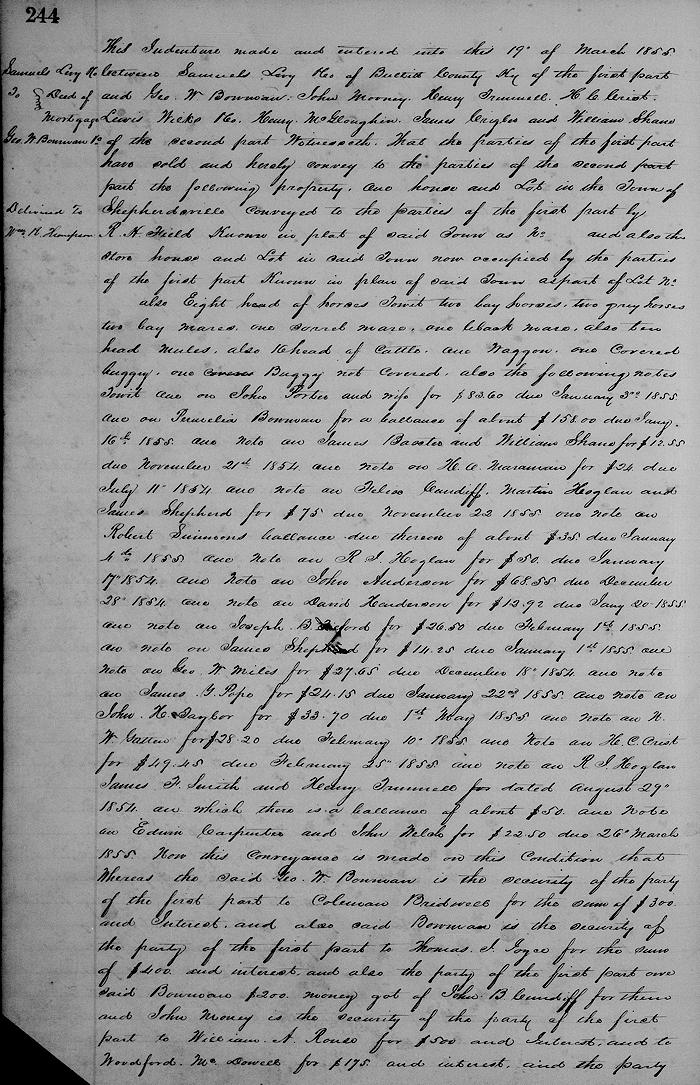 244
Samuels Levy &Co
To } Deed of
Mortgage
Geo. W. Bowman &c
Delivered To
Wm. H. Thompson
This Indenture made and entered into this 19" of March 1855
between Samuels Levy &Co of Bullitt County Ky of the first part
and Geo. W Bowman. John Mooney. Henry Trunnell. H. C. Crist.
Lewis Wicks &Co. Henry McGloughlin. James Crigler and William Shane
of the second part Witnesseth. That the parties of the first part
have sold and hereby convey to the parties of the second part
part the following property. one house and Lot in the Town of
Shepherdsville conveyed to the parties of the first part by
R. H. Field Known in plat of said Town as No and also the
store house and Lot in said Town now occupied by the parties
of the first part Known in plan of said Town as part of Lot No
also Eight head of horses Towit two bay horses. two grey horses
two bay mares. one sorrel mare. one black mare. also ten
head mules. also 16 head of Cattle. one Waggon. one Covered
buggy. one Buggy not Covered. also the following notes
Towit one on John Porter and wife for $83.60 due January 3rd 1855
one on Permelia Bowman for a ballance of about $158.00 due Jany.
16th 1855. one note on James Baxter and William Shane for $12.55
due November 21st 1854 one note on H. C. for $24. due
July 11" 1854 one note on Felix Cundiff. Martin Hoglan and
James Shepherd for $75 due November 22 1855 one note on
Robert Simmons ballance due thereon of about $35 due January
4th 1855 one note on R. J. Hoglan for $50. due January
17" 1854. one note on John Anderson for $68.55 due December
28" 1854 one note on David Henderson for $12.92 due Jany 20 1855
one note on Joseph. B. for $26.50 due February 1st 1855.
on note on James Shepherd for $14.25 due January 1st 1855 one
note on Geo. W. Miles for $27.65 due December 18" 1854 one note
on James. G. Pope for $24.15 due January 22nd 1855. one note on
John. H. Taylor for $33.70 due 1st May 1855 one note on N.
W. Gatton for $28.20 due February 10" 1855 one Note on H. C. Crist
for $49.45 due February 25" 1855 one note on R. J. Hoglan
James F. Smith and Henry Trunnell for dated August 29"
1854 on which there is a ballance of about $50. one Note
on Edwin Carpenter and John Welsh for $22.50 due 26" March
1855. Now this conveyance is made on this Condition that
Whereas the said Geo. W Bowman is the security of the party
of the first part to Coleman Bridwell for the sum of $300
and Interest. and also said Bowman is the security of
the party of the first part to Thomas. J. Joyce for the sum
of $400. and interest and also the party of the first part owe
said Bowman $200. money got of John B Cundiff for them
and John Money is the security of the party of the first
part to William. A. Rouse for $500 and Interest. and to
Woodford. McDowell for $175. and interest. and the party